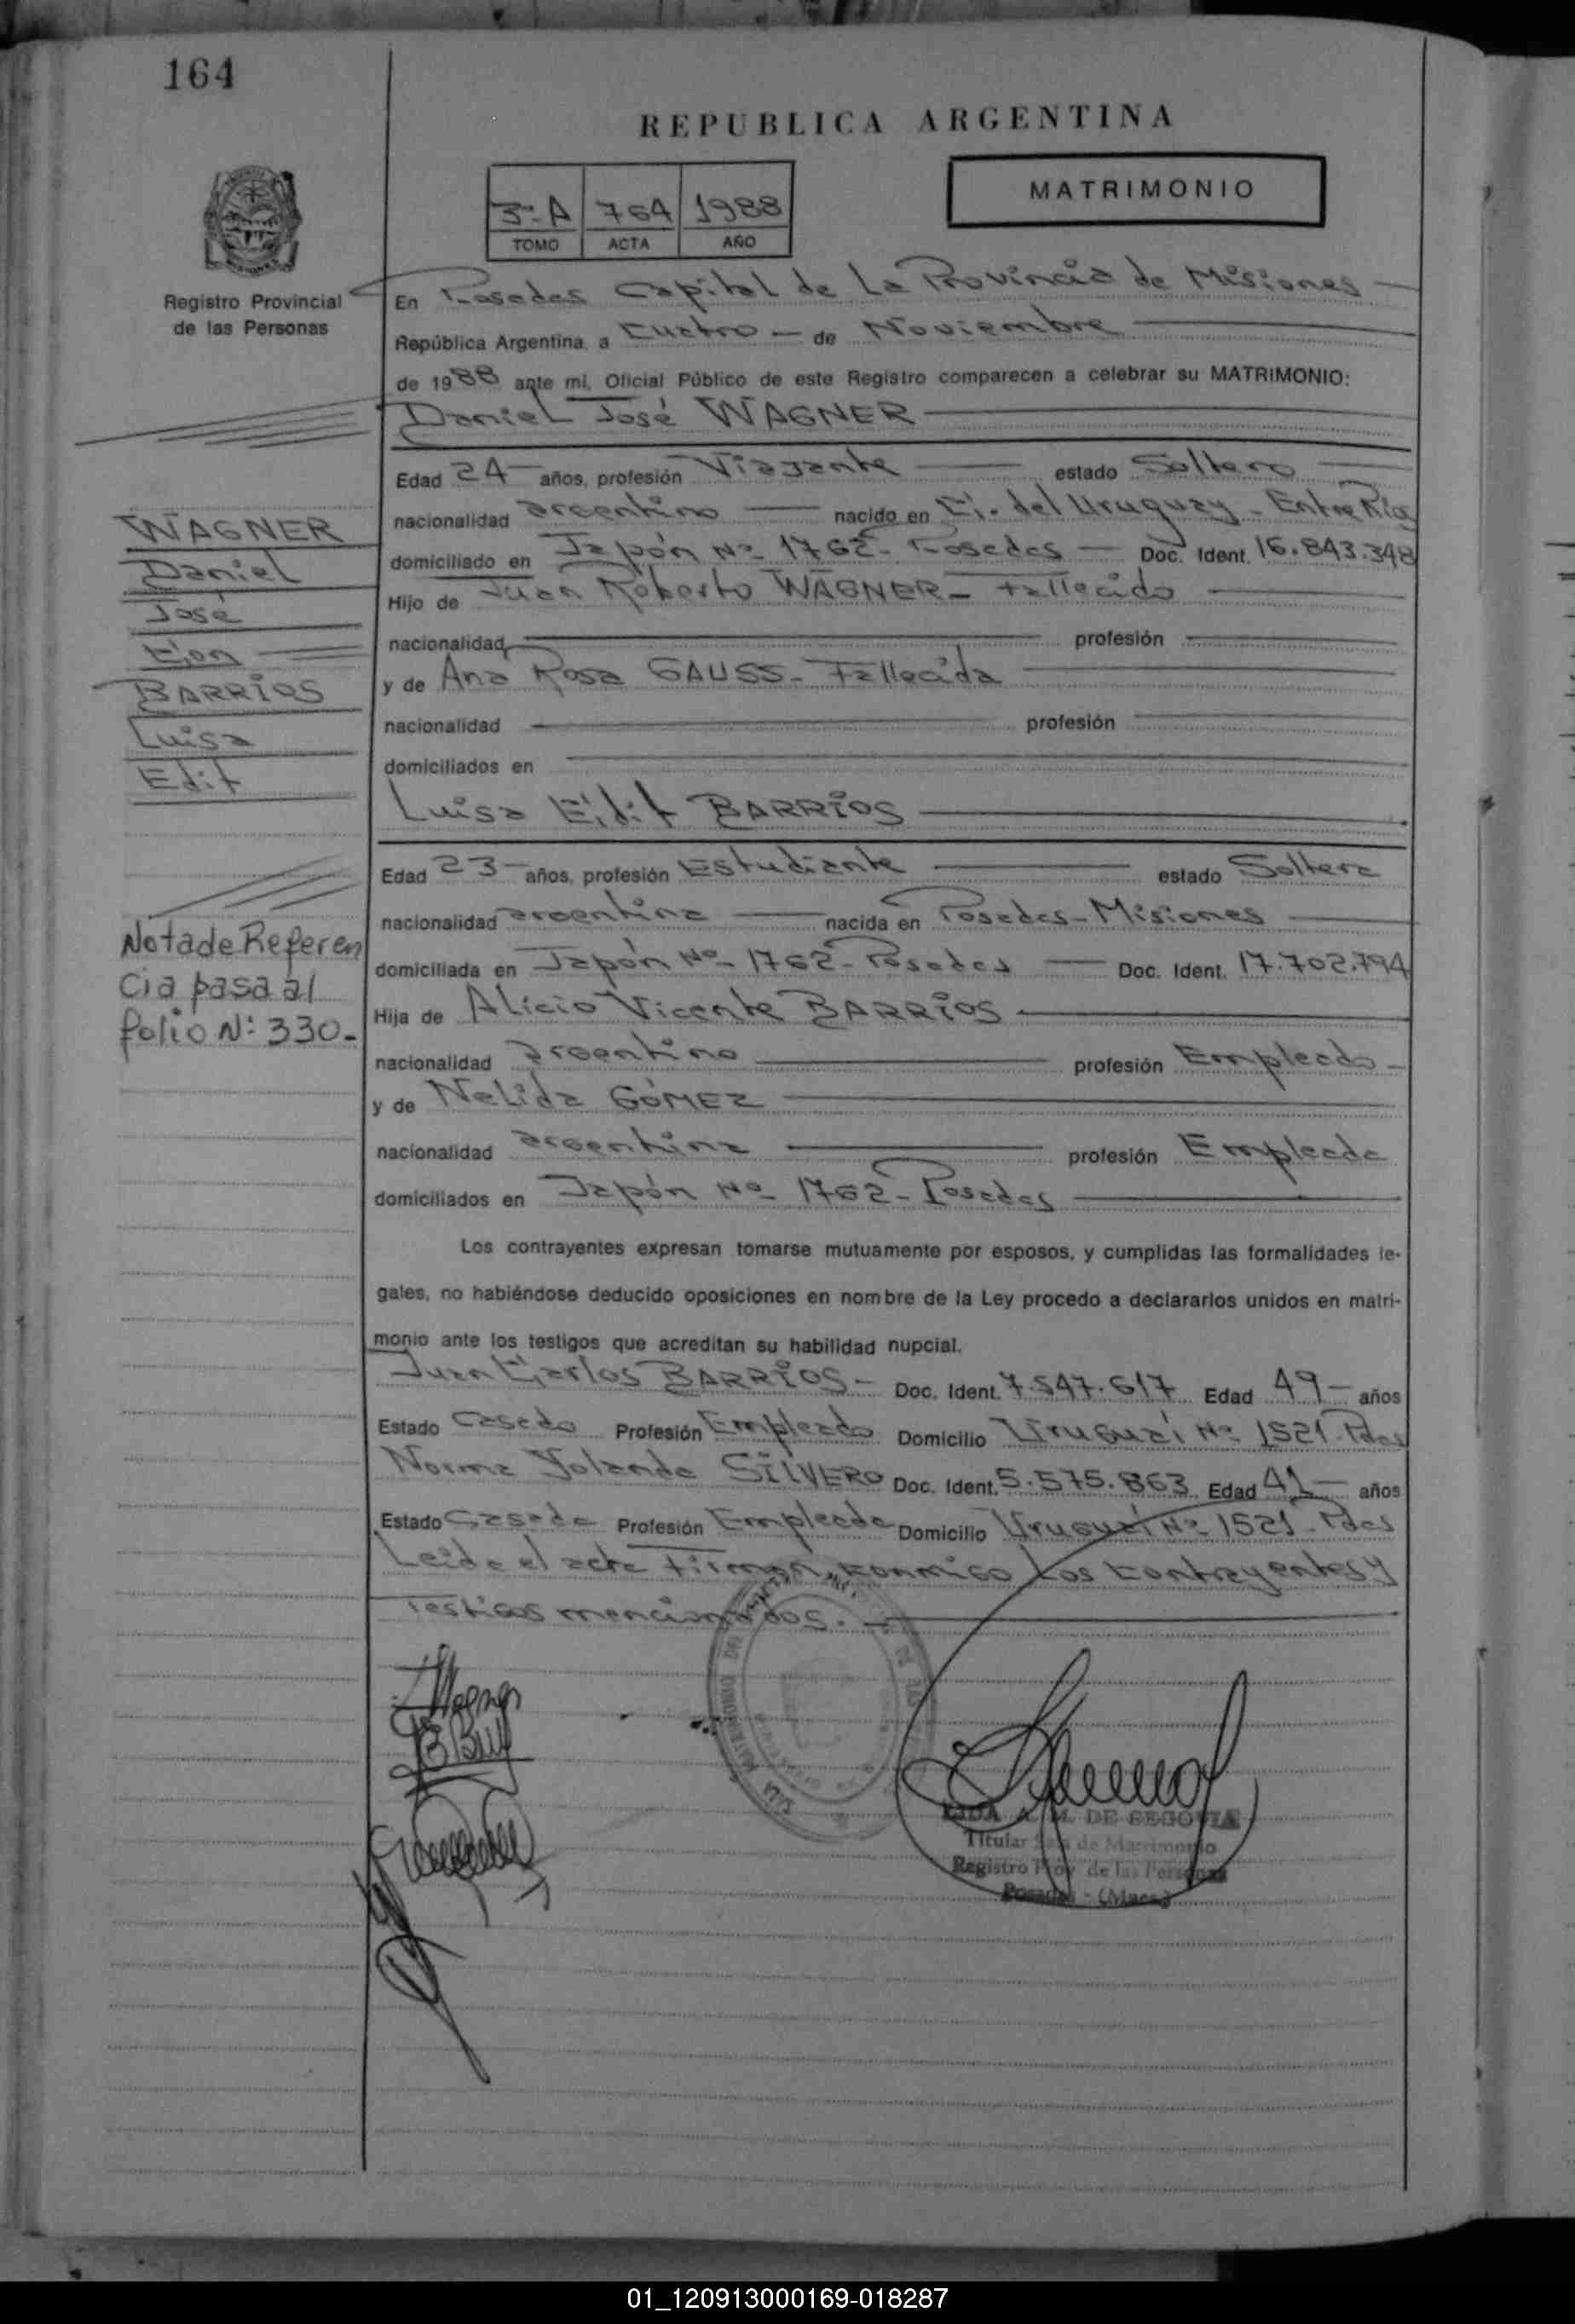 164
REPUBLICA ARGENTINA
MATRIMONIO
3º A 764 1988
TOMO ACTA AÑO
Registro Provincial
de las Personas
En Posadas Capital de La Provincia de Misiones
República Argentina, a Cuatro de Noviembre
de 1988 ante mi, Oficial Público de este Registro comparecen a celebrar su MATRIMONIO:
Daniel José WAGNER
Edad 24 años, profesión Viajante estado Soltero
nacionalidad argentino nacido en C. del Uruguay - Entre Ríos
domiciliado en Japón Nº 1762 - Posadas Doc. Ident. 16.843.348
Hijo de Juan Roberto WAGNER - Fallecido
nacionalidad profesión
y de Ana Rosa GAUSS - Fallecida
nacionalidad profesión
domiciliados en
Luisa Edit BARRIOS
Edad 23 años, profesión Estudiante estado Soltera
nacionalidad argentina nacida en Posadas - Misiones
domiciliada en Japón Nº 1762 - Posadas Doc. Ident. 17.702.794
Hija de Alicio Vicente BARRIOS
nacionalidad argentino profesión Empleado
y de Nelida GÓMEZ
nacionalidad argentina profesión Empleada
domiciliados en Japón Nº 1762 - Posadas
Los contrayentes expresan tomarse mutuamente por esposos, y cumplidas las formalidades le-
gales, no habiéndose deducido oposiciones en nombre de la Ley procedo a declararlos unidos en matri-
monio ante los testigos que acreditan su habilidad nupcial.
Juan Carlos BARRIOS - Doc. Ident. 7.547.617 Edad 49 años
Estado Casado Profesión Empleado Domicilio Uruguaí Nº 1521 Pdas
Norma Yolanda SILVERO Doc. Ident. 5.575.863 Edad 41 años
Estado Casada Profesión Empleada Domicilio Uruguaí Nº 1521 - Pdas
Leida el acta firman conmigo Los Contrayentes y
Testigos mencionados.
WAGNER
Daniel
José
Con
BARRIOS
Luisa
Edit
Nota de Referen
cia pasa al
folio Nº: 330-
A. M. DE SEGOVIA
Titular Sala de Matrimonio
Registro Prov. de las Personas
Posadas - (Mnes.)
01_120913000169-018287